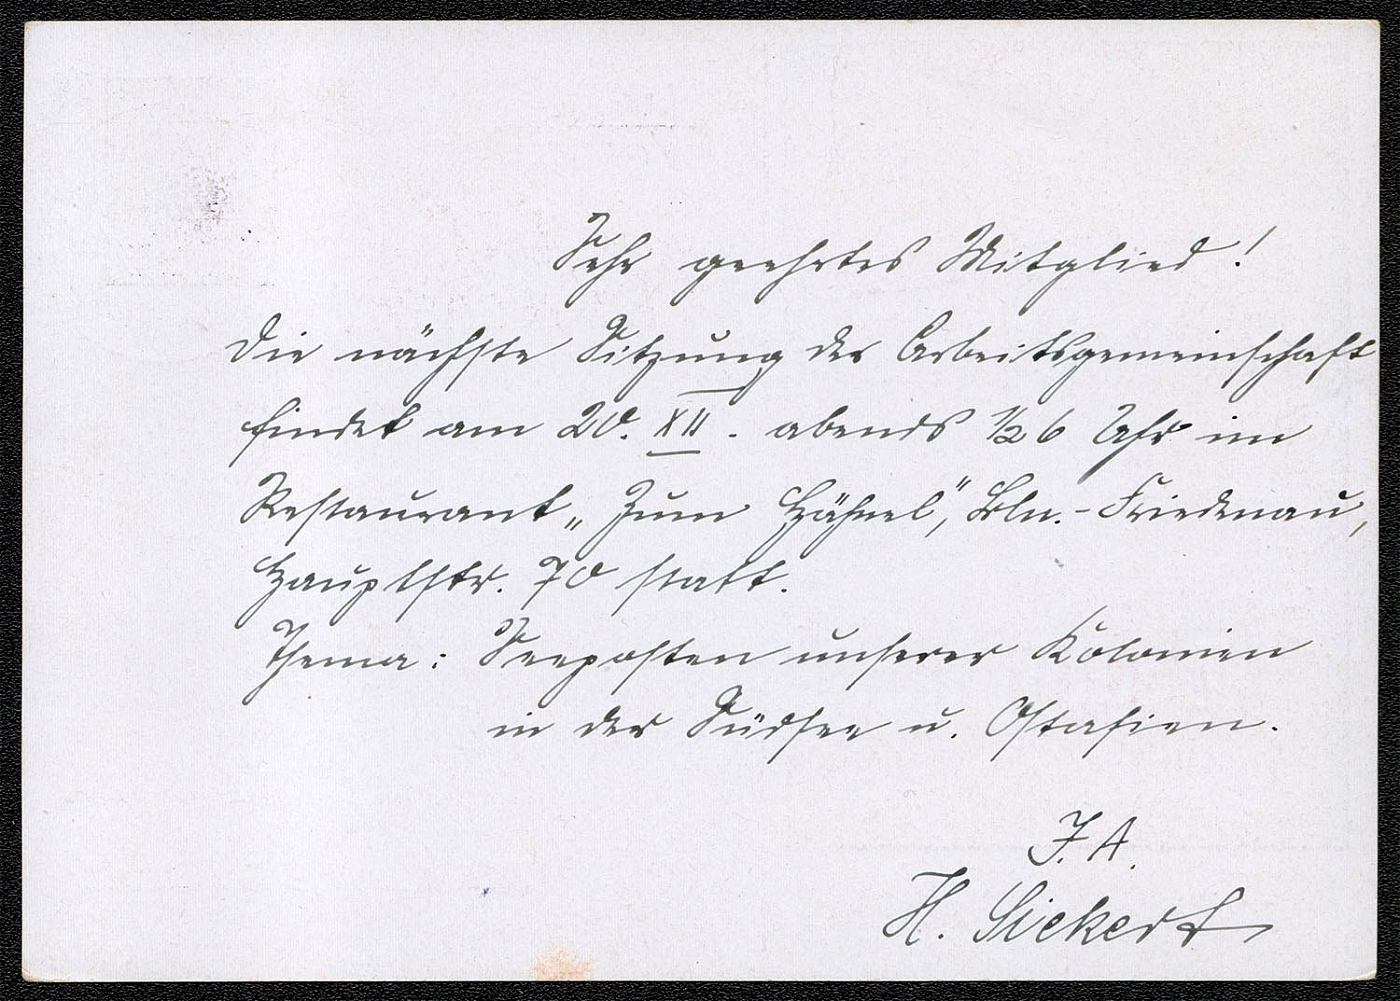 Sehr geehrtes Mitglied!
Die nächste Sitzung der Arbeitsgemeinschaft
findet am 20. XII. abends 1/2 6 Uhr im
Restaurant „Zum Hähnel“, Bln.-Friedenau,
Hauptstr. 70 statt.
Thema: Seeposten unserer Kolonien
in der Südsee u. Ostasien.
I. A.
H. Siekert